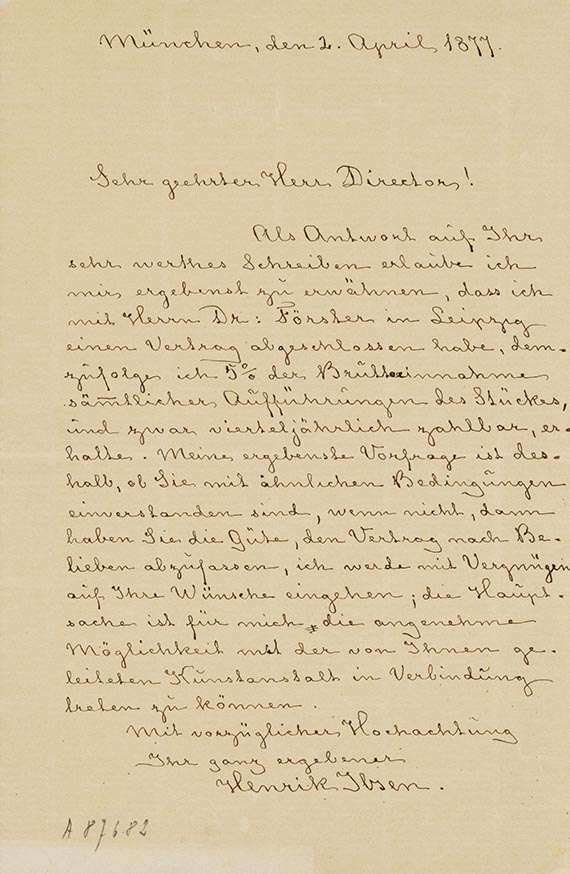 München, den 2. April 1877.
Sehr geehrter Herr Director!
Als Antwort auf Ihr
sehr werthes Schreiben erlaube ich
mir ergebenst zu erwähnen, dass ich
mit Herrn Dr: Förster in Leipzig
einen Vertrag abgeschlossen habe, dem-
zufolge ich 5% der Bruttoeinnahme
sämtlicher Aufführungen des Stückes,
und zwar vierteljährlich zahlbar, er-
halte. Meine ergebenste Vorfrage ist des-
halb, ob Sie mit ähnlichen Bedingungen
einverstanden sind, wenn nicht, dann
haben Sie die Güte, den Vertrag nach Be-
lieben abzufassen, ich werde mit Vergnügen
auf Ihre Wünsche eingehen; die Haupt-
sache ist für mich die angenehme
Möglichkeit mit der von Ihnen ge-
leiteten Kunstanstalt in Verbindung
treten zu können.
Mit vorzüglicher Hochachtung
Ihr ganz ergebener
Henrik Ibsen.
A 87682